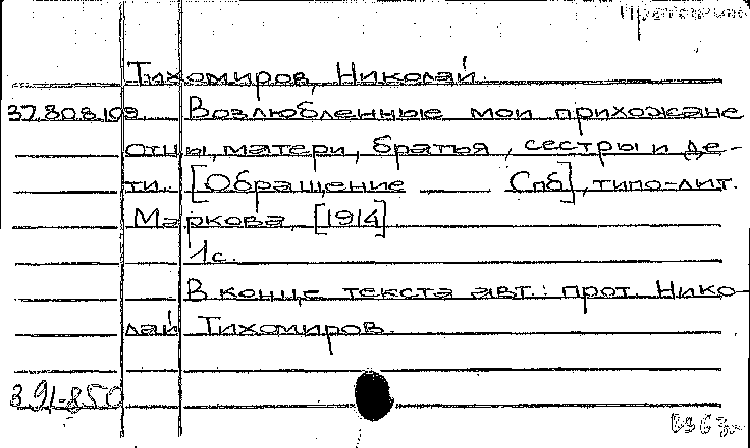 Тихомиров, Николай.
37.80.8.109. Возлюбленные мои прихожане
отцы, матери, братья, сестры и де-
ти.. [Обращение Спб], типо-лит.
Маркова, [1914]
1с.
В конце текста авт.: прот. Нико-
лай Тихомиров.
391-850